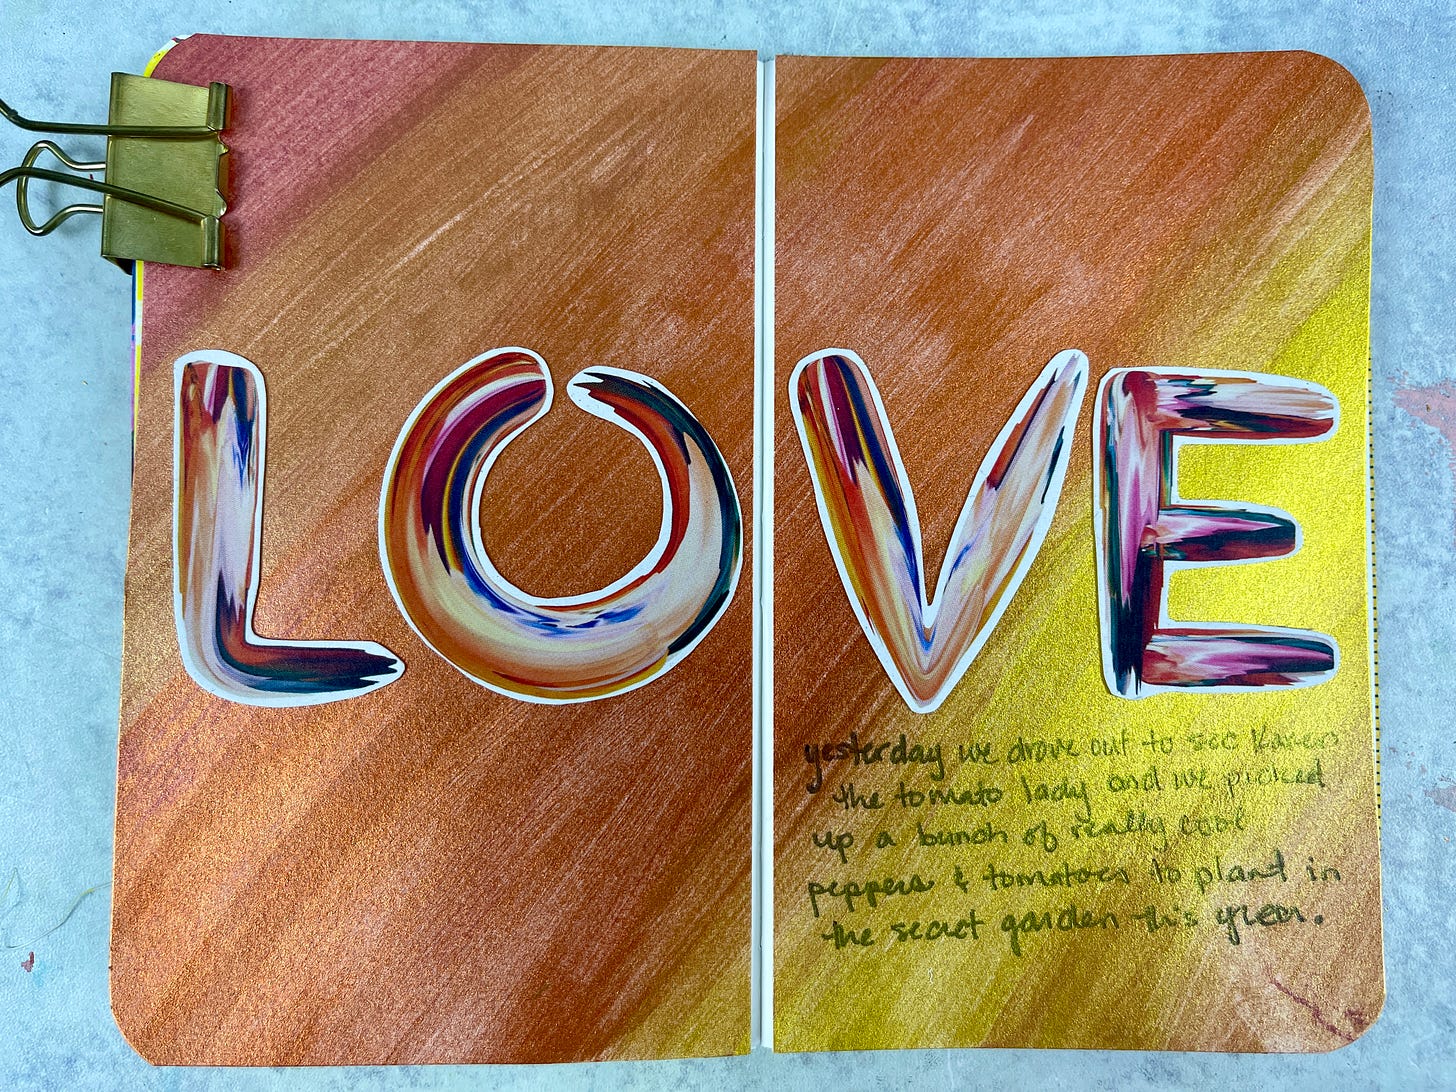 LOVE
yesterday we drove out to see Karen
the tomato lady and we picked
up a bunch of really cool
peppers & tomatoes to plant in
the secret garden this year.